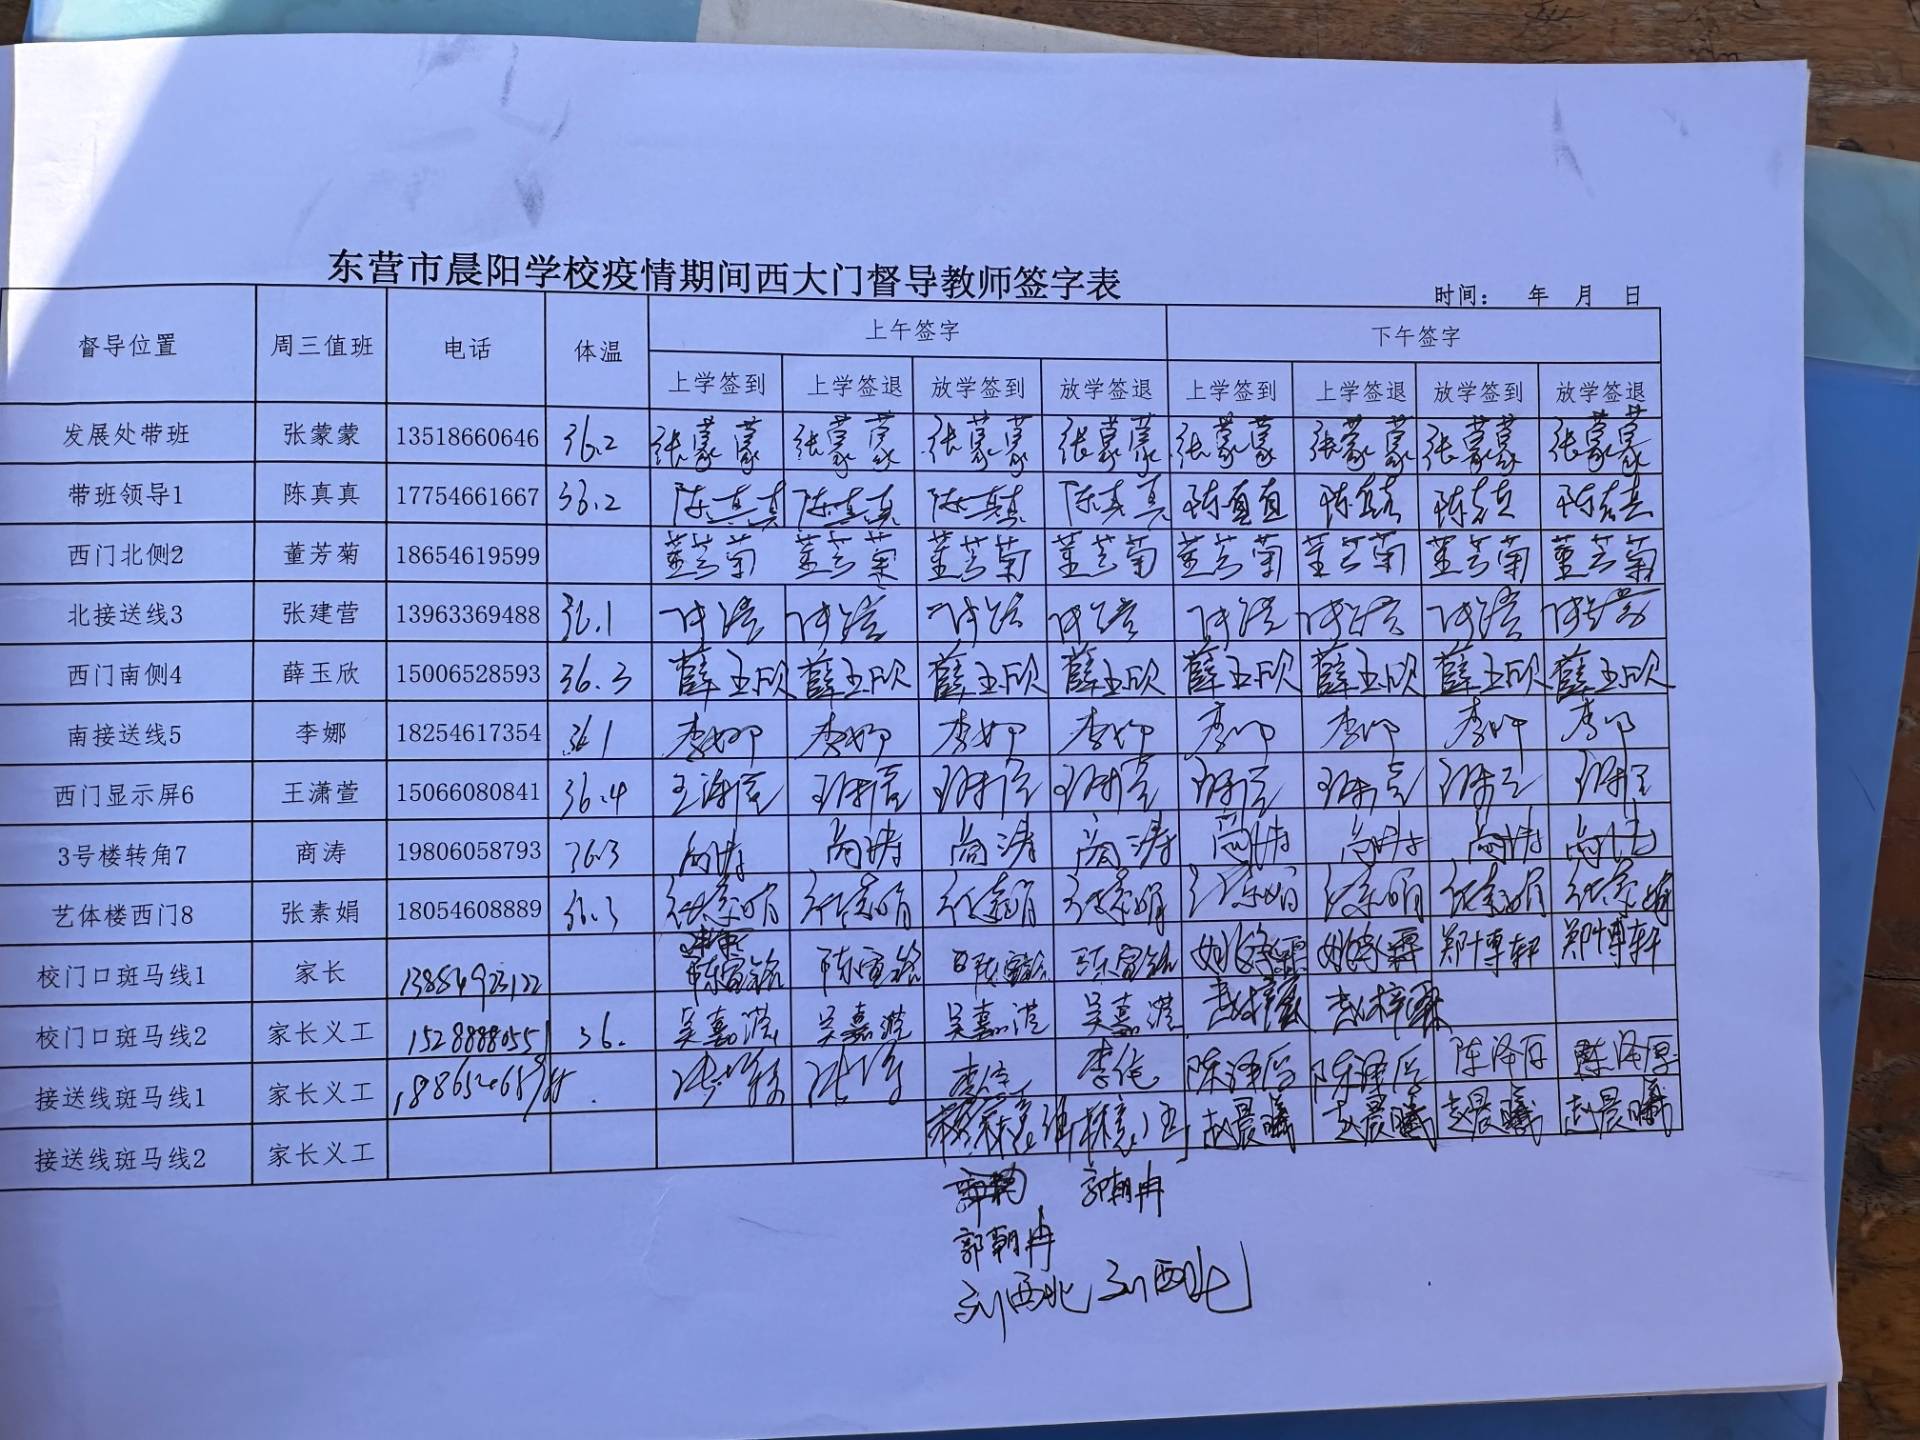 东营市晨阳学校疫情期间西大门督导教师签字表
时间： 年 月 日
督导位置 周三值班 电话 体温 上午签字 下午签字
上学签到 上学签退 放学签到 放学签退 上学签到 上学签退 放学签到 放学签退
发展处带班 张蒙蒙 13518660646 36.2 张蒙蒙 张蒙蒙 张蒙蒙 张蒙蒙 张蒙蒙 张蒙蒙 张蒙蒙 张蒙蒙
带班领导1 陈真真 17754661667 陈真真 陈真真 陈真真 陈真真 陈真真 陈真真 陈真真 陈真真
西门北侧2 董芳菊 18654619599 董芳菊 董芳菊 董芳菊 董芳菊 董芳菊 董芳菊 董芳菊 董芳菊
北接送线3 张建营 13963369488 36.1
西门南侧4 薛玉欣 15006528593 36.3 薛玉欣 薛玉欣 薛玉欣 薛玉欣 薛玉欣 薛玉欣 薛玉欣 薛玉欣
南接送线5 李娜 18254617354 36.1 李娜 李娜 李娜 李娜 李娜 李娜 李娜 李娜
西门显示屏6 王潇萱 15066080841 36.4
3号楼转角7 商涛 19806058793 36.3 商涛 商涛 商涛 商涛 商涛 商涛 商涛 商涛
艺体楼西门8 张素娟 18054608889 36.3 张素娟 张素娟 张素娟 张素娟 张素娟 张素娟 张素娟 张素娟
校门口斑马线1 家长 13884923122 陈宣铭 陈宣铭 陈宣铭 陈宣铭 郑博轩 郑博轩
校门口斑马线2 家长义工 15288880551 36. 吴嘉滢 吴嘉滢 吴嘉滢 吴嘉滢
接送线斑马线1 家长义工 陈泽厚 陈泽厚 陈泽厚 陈泽厚
接送线斑马线2 家长义工 赵晨曦 赵晨曦 赵晨曦 赵晨曦
郭朝冉
郭朝冉
刘西北 刘西北